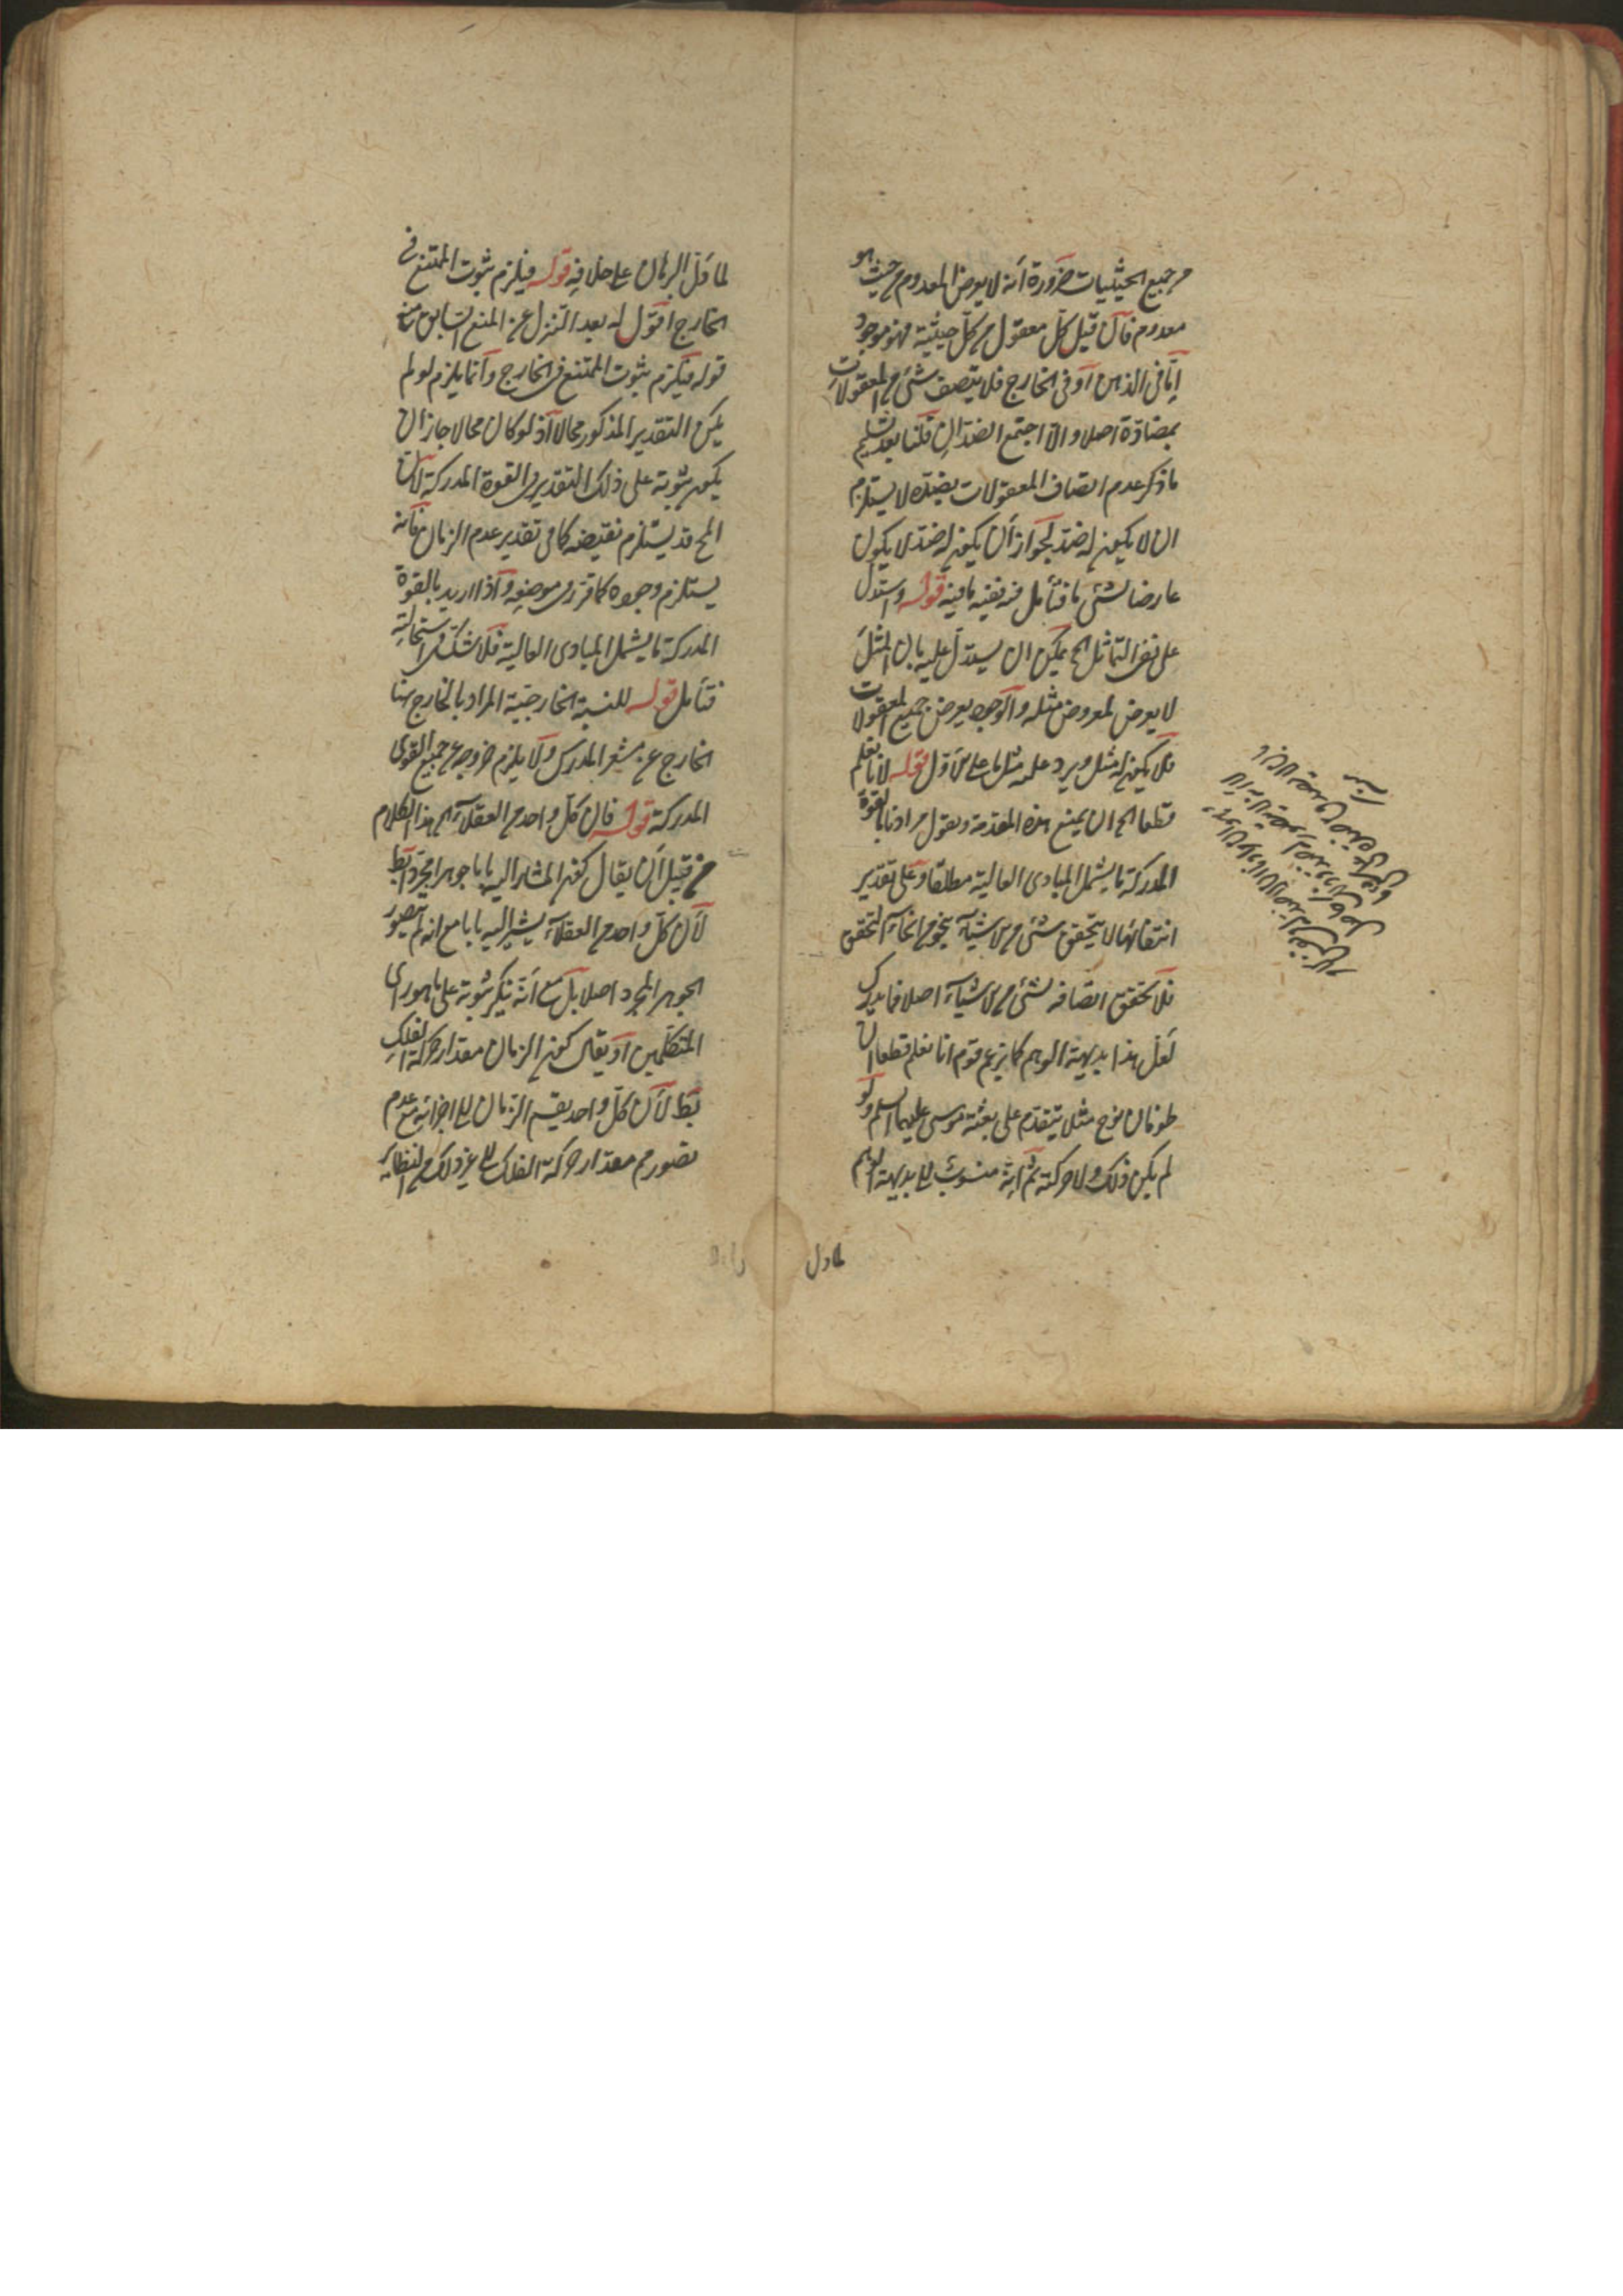 من جميع الحيثيات ضرورة أنه لا يعرض المعدوم من حيث هو
معدوم فان قيل كل معقول من كل حيثية فهو موجود
اما فى الذهن او فى الخارج فلا يتصف شئ من المعقولات
بمضادة اصلا والا اجتمع الضدان قلنا بعد تسليم
ما ذكر عدم اتصاف المعقولات بضده لا يستلزم
ان لا يكون له ضد لجواز أن يكون له ضد لا يكون
عارضا لشئ ما فتأمل فيه نفيه ما فيه قوله واستدل
على نفى التماثل الخ يمكن ان يستدل عليه بان المثل
لا يعرض لمعروض مثله والوجود يعرض جميع المعقولات
فلا يكون له مثل ويرد عليه مثل ما على الاول قوله لانا نعلم
قطعا الخ ان يمنع هذه المقدمة ونقول مرادنا بالقوة
المدركة ما يشمل المبادى العالية مطلقا وعلى تقدير
انتفائها لا يتحقق شئ من الاشياء بنحو من انحاء التحقق
فلا تحقق اتصافه لشئ من الاشياء اصلا فما يدرك
لعل هذا بديهة الوهم كما يزعم قوم انا نعلم قطعا ان
طوفان نوح مثلا يتقدم على بعثة موسى عليهما السلم ولو
لم يكن فلك ولا حركته ثم انه منسوب الى بديهة الوهم
لما دل
لما دل البرهان على خلافه قوله فيلزم ثبوت الممتنع فى
الخارج اقول له بعد التنزل عن المنع السابق منع
قوله فيلزم ثبوت الممتنع فى الخارج وانما يلزم لو لم
يكن التقدير المذكور محالا اذ لو كان محالا جاز ان
يكون ثبوته على ذلك التقدير فى القوة المدركة لان
المح قد يستلزم نقيضه كما فى تقدير عدم الزمان فانه
يستلزم وجوده كما قرر فى موضعه واذا اريد بالقوة
المدركة ما يشمل المبادى العالية فلا شك فى استحالته
فتأمل قوله للنسبة الخارجية المراد بالخارج هنا
الخارج عن مشعر المدرس ولا يلزم خروجه عن جميع القوى
المدركة قوله فان كل واحد من العقلاء الخ هذا الكلام
من قبيل أن يقال كون المشار اليه بانا جوهرا مجردا بط
لأن كل واحد من العقلاء يشير اليه بانا مع انه لم يتصور
الجوهر المجرد اصلا بل مع انه ينكر ثبوته على ما هو راى
المتكلمين او يقال كون الزمان مقدار حركة الفلك
بط لأن كل واحد يقسم الزمان الى اجزائه مع عدم
تصورهم مقدار حركة الفلك الى غير ذلك من النظاير